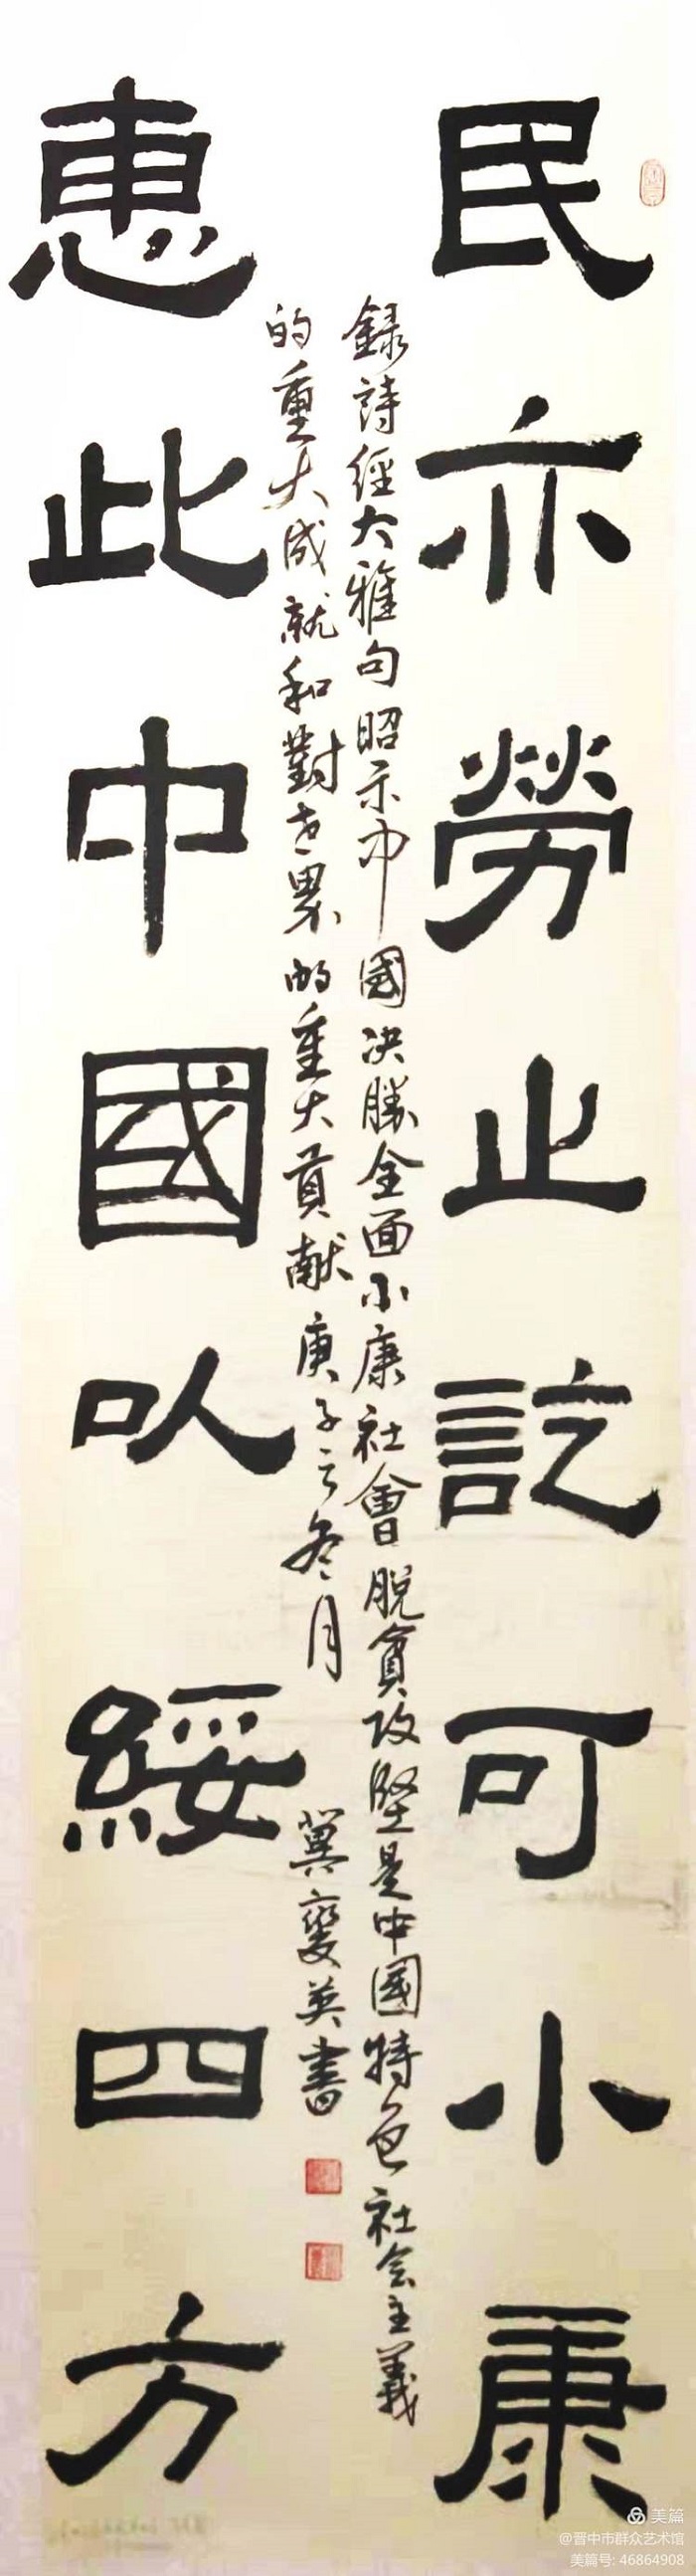 民亦勞止訖可小康
惠此中國以綏四方
録詩經大雅句昭示中國决勝全面小康社會脱貧攻堅是中國特色社会主義
的重大成就和對世界的重大貢献庚子之冬月
冀變英書
美篇
@晋中市群众艺术馆
美篇号: 46864908